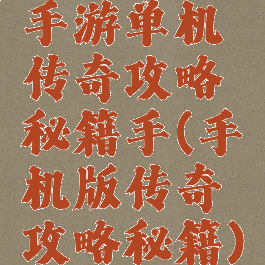 手游单机
传奇攻略
秘籍手(手
机版传奇
攻略秘籍)